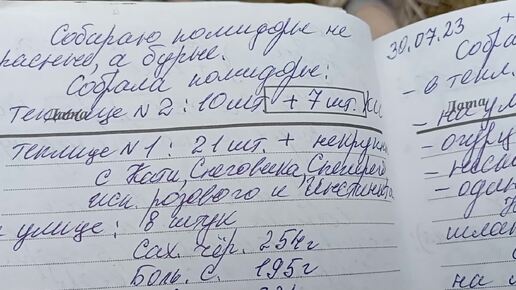 Собираю помидоры не
красные, а бурые.
Собрала помидоры:
теплице №2: 10 шт. + 7 шт.
Дата
теплице №1: 21 шт. + некрупн
с Кати, Снеговика, Снегирей
розового и
улице: 8 штук
Сах. чёр. 254 г
Боль. С. 195 г
30.07.23
+
Собра
- в тепл.
- на ул
Дата
- огур
- неск
- один
на